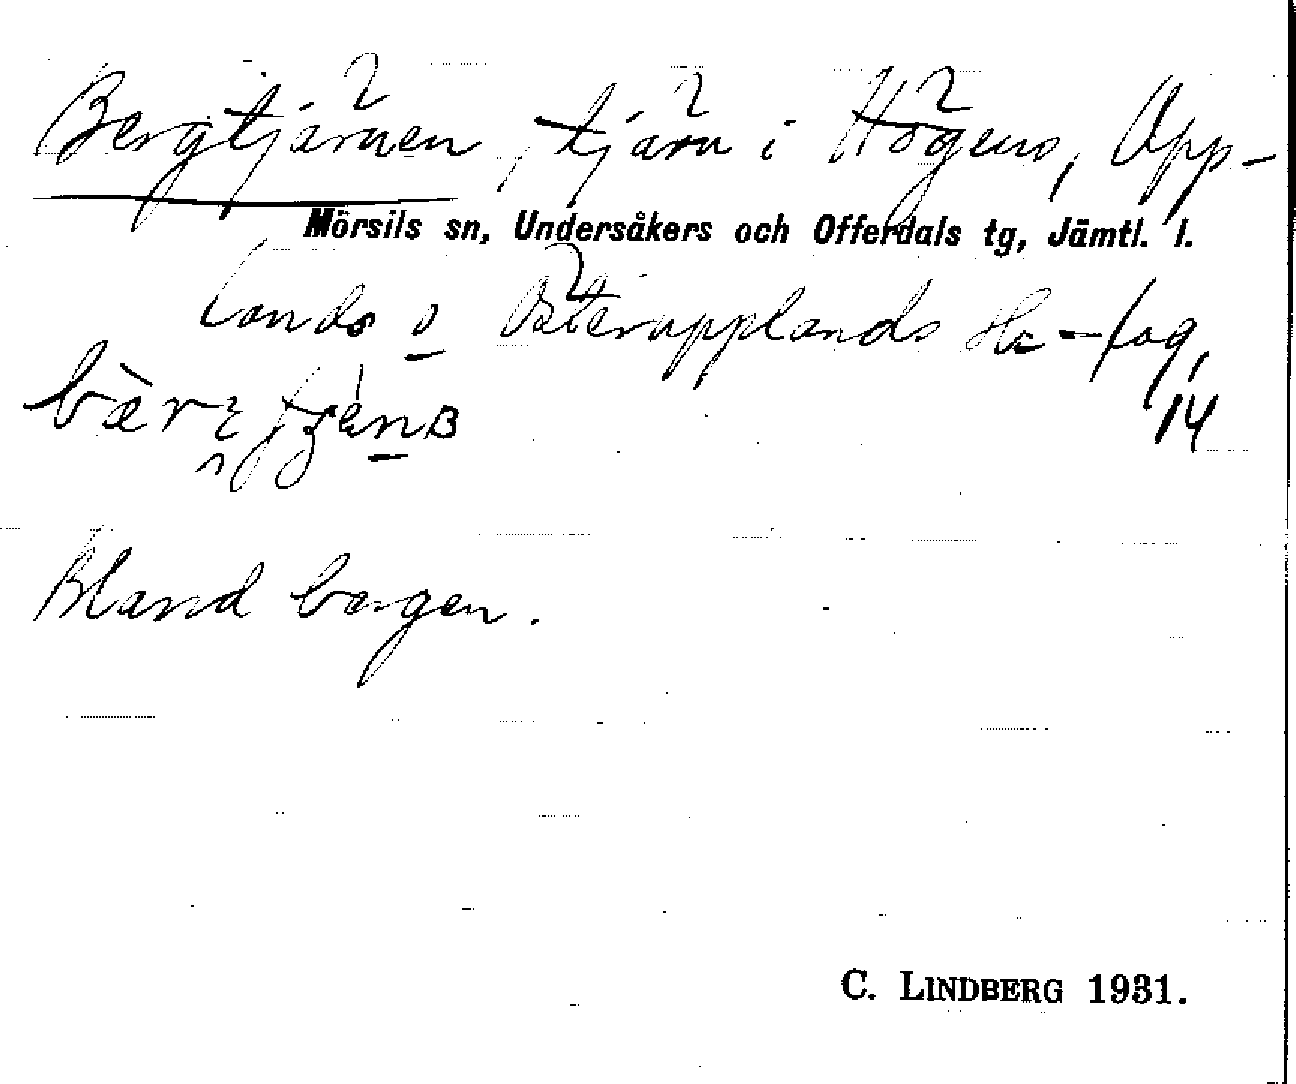 Bergtjärnen, tjärn i Högens, Upp-
Mörsils sn, Undersåkers och Offerdals tg, Jämtl. l.
lands o Österupplands He-fog,
14
Bland bergen.
C. LINDBERG 1931.